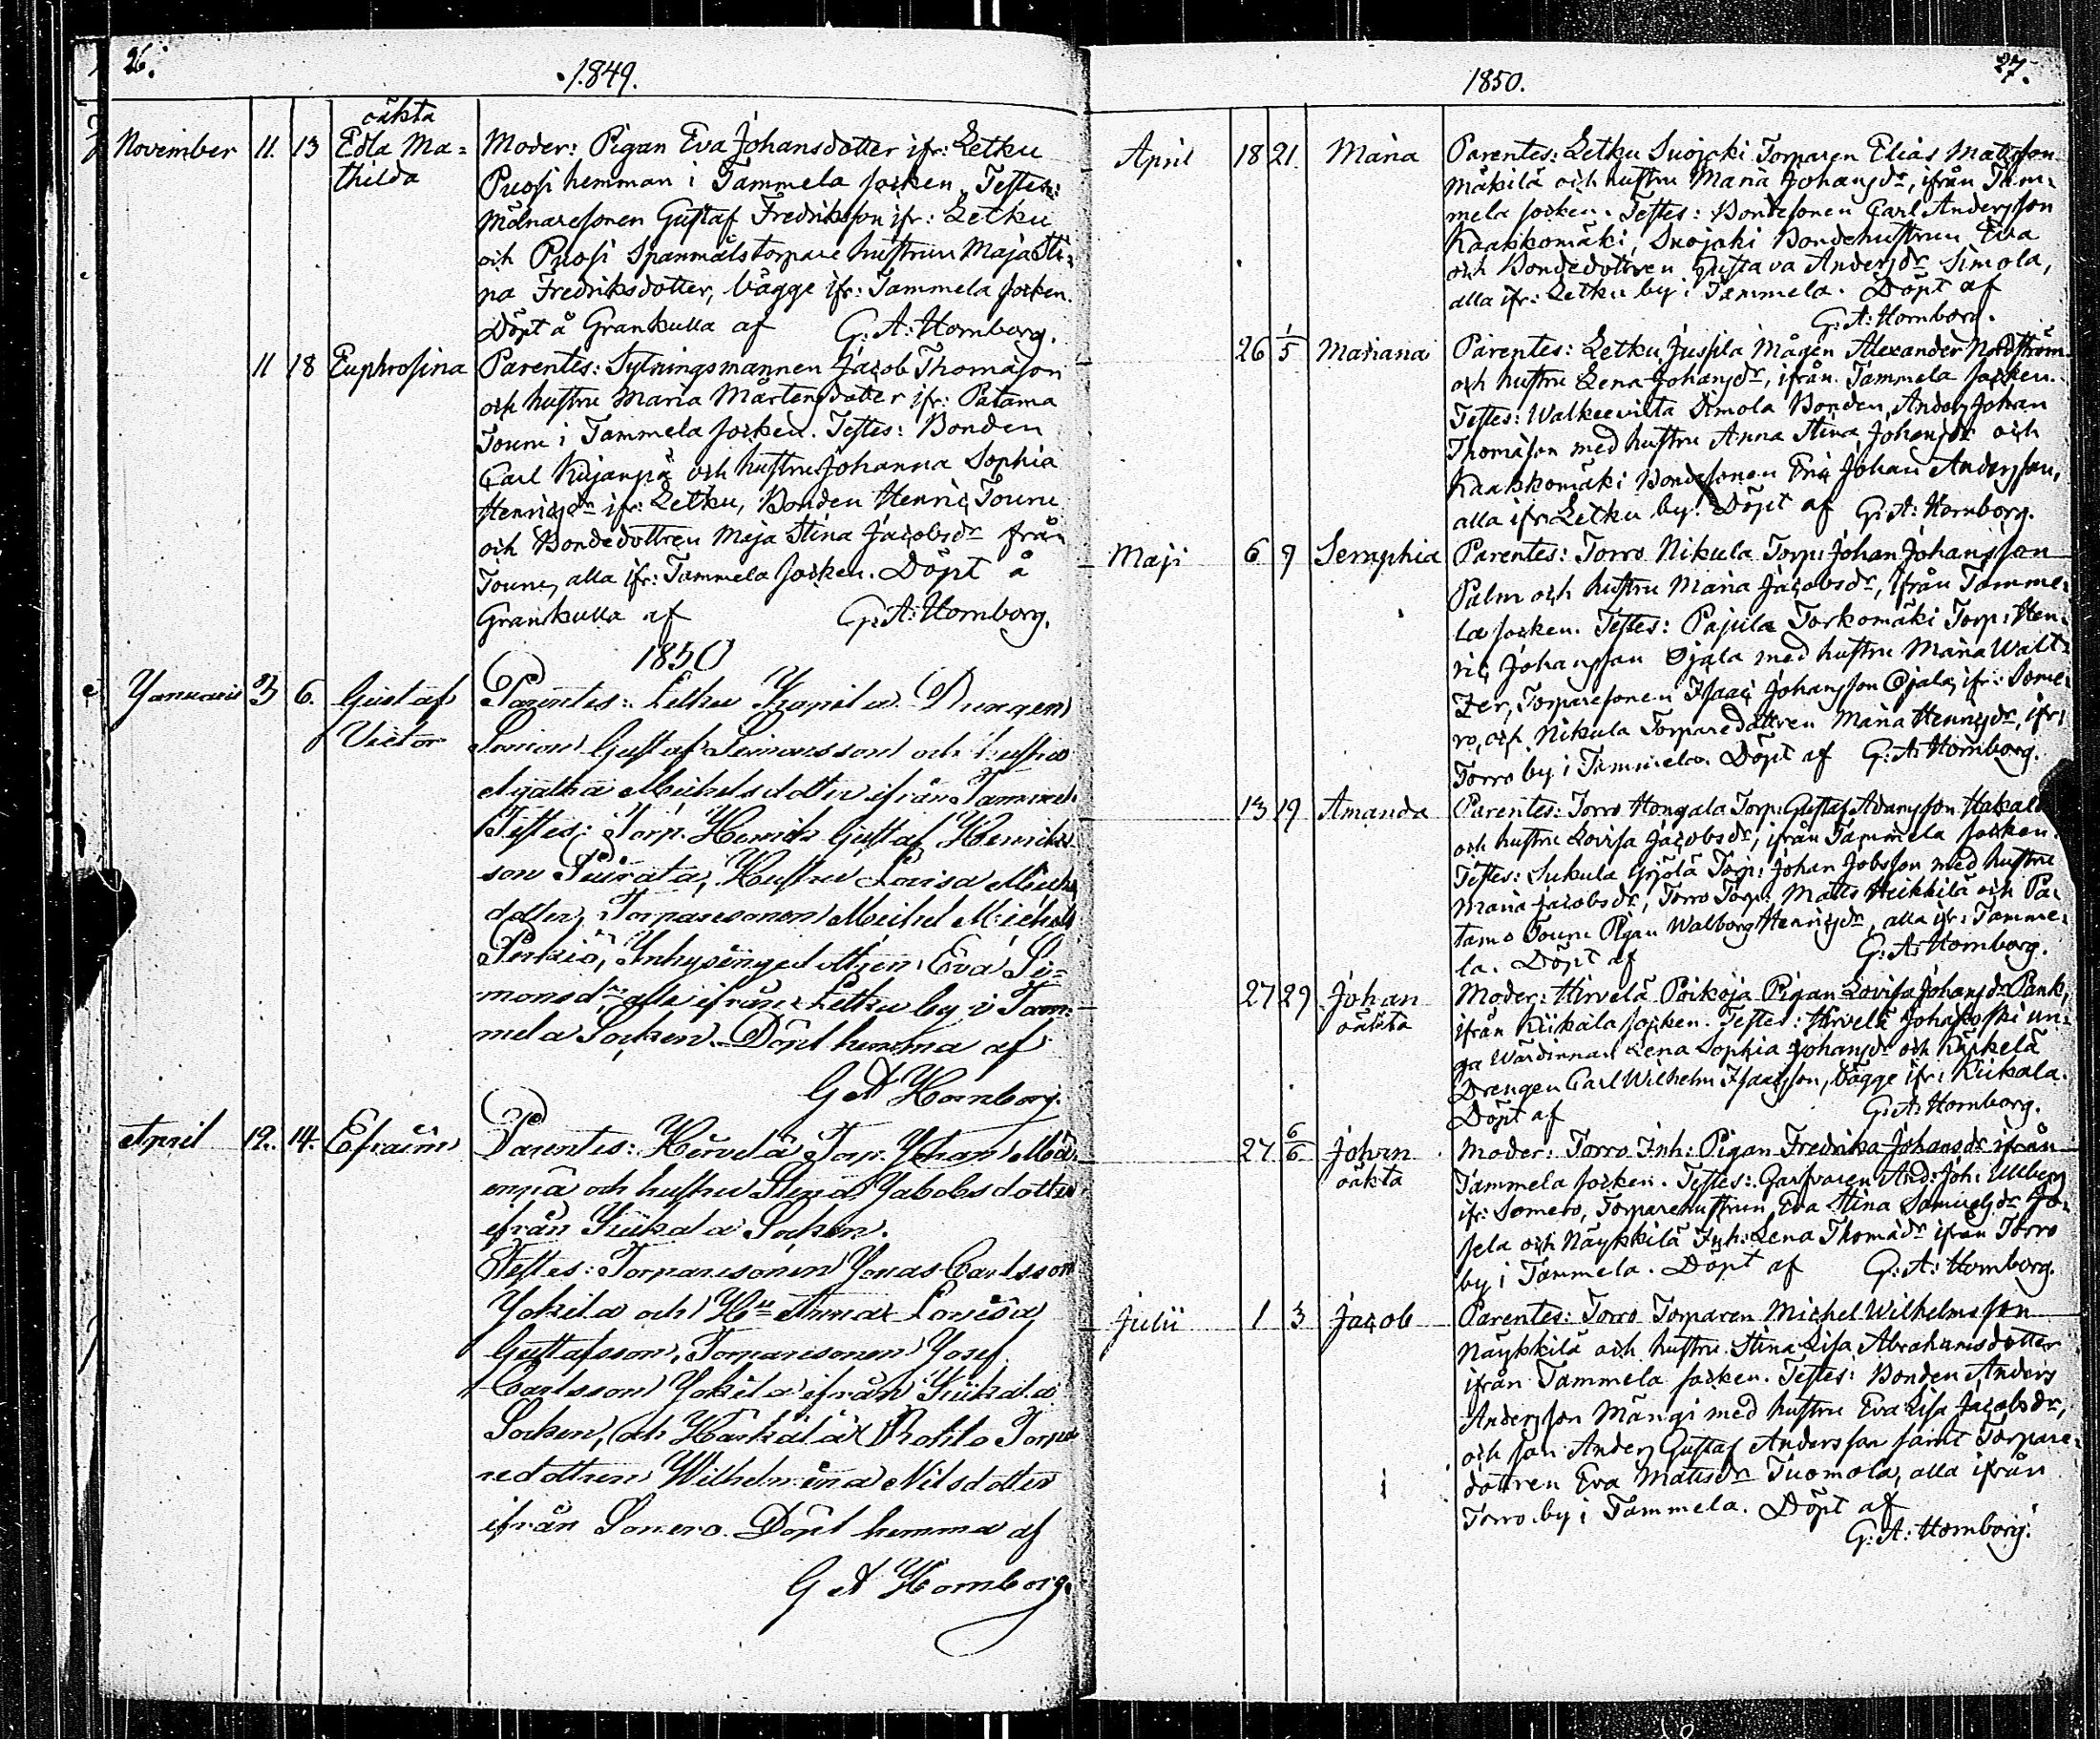 26.
1849.
November 11. 13 oäkta Edla Ma= Moder: Pigan Eva Johansdotter ifr: Letku
thilda Puosi hemman i Tammela socken. Testes:
Mölnaresonen Gustaf Fredriksson ifr: Letku
och Puosi Spanmålstorpare hustrun Maja Sti=
na Fredriksdotter, bägge ifr: Tammela socken.
Döpt å Grankulla af G: A: Hornborg.
11 18 Euphrosina Parentes: Sytningsmannen Jacob Thomasson
och hustru Maria Mårtensdotter ifr: Patama
Toune i Tammela socken. Testes: Bonden
Carl Kujanpä och hustru Johanna Sophia
Henricsdr ifr: Letku, Bonden Henric Toune
och Bondedottren Maja Stina Jacobsdr från
Toune, alla ifr: Tammela socken. Döpt å
Grankulla af G: A: Hornborg.
1850
Januarii 3 6. Gustaf Parentes: Letku Drengen
Victor Simon Gustaf Simonsson och hustru
Agatha Michelsdotter ifrån Tammela
Testes: Torp. Henrik Gustaf Henriks-
son Hustru Lovisa Michels
dotter, Torparesonen Michel Michels
Inhysingedottren Eva Si=
monsdr, alla ifrån Letku by i Tam=
mela Socken. Döpt hemma af
G A Hornborg.
April 12. 14. Efraim Parentes: Hirvelä Torp. Johan
och hustru Stina Jakobsdotter
ifrån Kiikala Socken.
Testes: Torparesonen Jonas Carlsson
Jokila och Hu Anna Lovisa
Gustafsson, Torparesonen Josef
Carlsson Jokila ifrån Kiikala
Socken, och Härkälä Torpa
redottren Wilhelmina Nilsdotter
ifrån Somero. Döpt hemma af
G A Hornborg.
27.
1850.
April 18 21. Maria Parentes: Letku Suojoki Torparen Elias Mattsson
Mäkilä och hustru Maria Johansdr, ifrån Tam=
mela socken. Testes: Bondesonen Carl Andersson
Kaakkomäki, Suojoki Bondehustrun Eva
och Bondedottren Gustava Andersdr Simola,
alla ifr: Letku by i Tammela. Döpt af
G: A: Hornborg.
26 1/5 Mariana Parentes: Letku Jussila Mågen Alexander Nordström
och hustru Lena Johansdr, ifrån Tammela socken.
Testes: Walkeevilta Simola Bonden Anders Johan
Thomasson med hustru Anna Stina Johansdr och
Kaakkomäki Bondesonen Eric Johan Andersson,
alla ifr: Letku by. Döpt af G: A: Hornborg.
Maji 6 9 Seraphia Parentes: Torro Nikula Torp: Johan Johansson
Palm och hustru Maria Jacobsdr, ifrån Tamme=
la socken. Testes: Pajula Torkomäki Torp: Hen=
ric Johansson Ojala med hustru Maria Walt=
zer, Torparesonen Isaac Johansson Ojala, ifr: Some=
ro, och Nikula Torparedottren Maria Henricsdr, ifr:
Torro by i Tammela. Döpt af G: A: Hornborg.
13 19 Amanda Parentes: Torro Hongala Torp: Gustaf Adamsson
och hustru Lovisa Jacobsdr, ifrån Tammela socken.
Testes: Sukula Torp: Johan Jobsson med hustru
Maria Jacobsdr, Torro Torp: Matts Heikkilä och Pa=
tamo Toune Pigan Walborg Henricsdr, alla ifr: Tamme=
la. Döpt af G: A: Hornborg.
27 29 Johan Moder: Hirvelä Poikoja Pigan Lovisa Johansdr Pank,
oäkta ifrån Kiikala socken. Testes: Hirvelä un=
ga Wärdinnan Lena Sophia Johansdr och Kärkelä
Drengen Carl Wilhelm Isaacsson, bägge ifr: Kiikala.
Döpt af G: A: Hornborg.
27 6/6 Johan Moder: Torro Inh: Pigan Fredrika Johansdr ifrån
oäkta Tammela socken. Testes: Garfvaren And: Joh: Ullberg
ifr: Somero, Torparehustrun Eva Stina Samuelsdr Jo=
sela och Näykkilä Inh: Lena Thomasdr ifrån Torro
by i Tammela. Döpt af G: A: Hornborg.
Julii 1 3 Jacob Parentes: Torro Torparen Michel Wilhelmsson
Näykkilä och hustru Stina Lisa Abrahamsdotter
ifrån Tammela socken. Testes: Bonden Anders
Andersson Mängi med hustru Eva Lisa Jacobsdr,
och son Anders Gustaf Andersson samt Torpare=
dottren Eva Mattsdr Tuomola, alla ifrån
Torro by i Tammela. Döpt af
G: A: Hornborg.